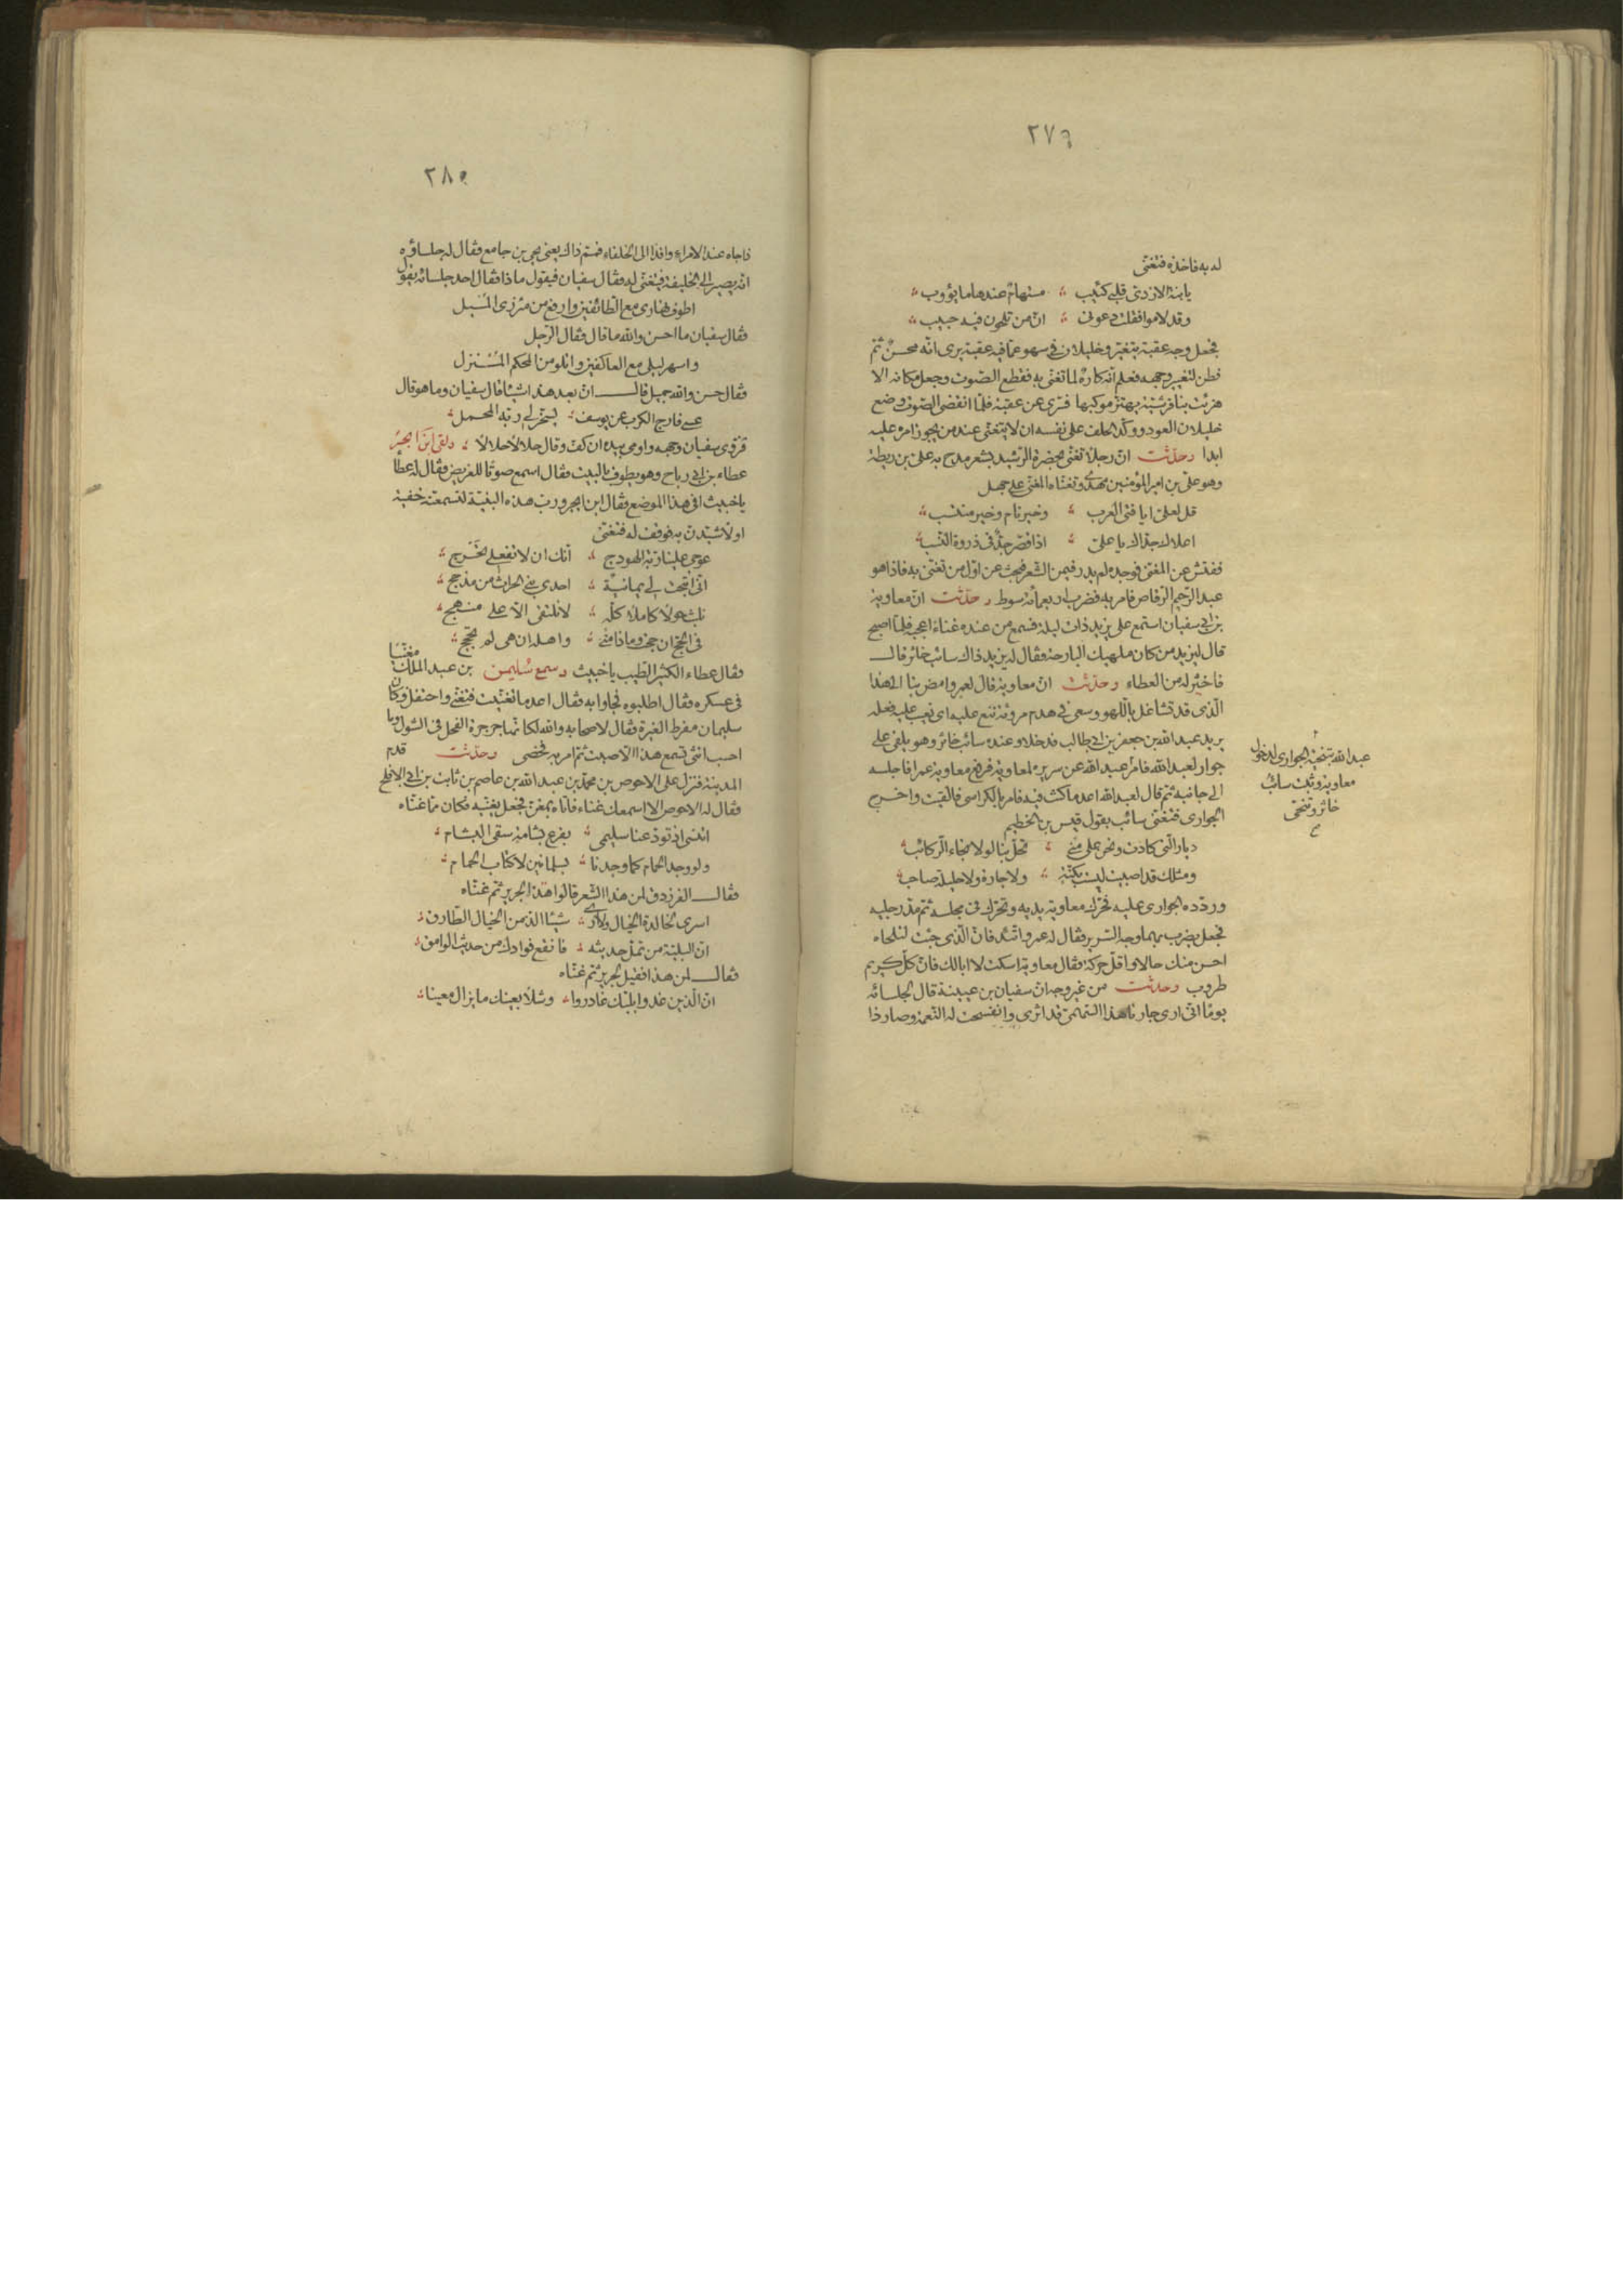 ٢٧٩
له به فاخذه فتغنى
يا ابنة الازدى قلبى كئيب ؞ مستهام عندها ما يؤوب ؞
وقد لاموا فقلت دعونى ؞ ان من تلحون فيه حبيب ؞
فجعل وجه عقبة يتغير وخليلان فى سهو عما فيه عقبة يرى انه محسن ثم
فطن لتغير وجهه فعلم انه كاره لما تغنى به فقطع الصوت وجعل مكانه الا
هزئت بنا قرشية يهتز موكبها فسرى عن عقبة فلما انقضى الصوت وضع
خليلان العود ووكد الحلف على نفسه ان لا يتغنى عند من يجوز امره عليه
ابدا وحدثت ان رجلا تغنى بحضرة الرشيد بشعر مدح به على بن ريطة
وهو على بن امير المؤمنين مهدى وتغناه المغنى على جهل
قل لعلى ايا فتى العرب ؞ وخير نام وخير منتسب ؞
اعلاك جداك يا على ؞ اذا قصر جد فى ذروة النسب ؞
ففتش عن المغنى فوجده لم يدر فيمن الشعر فبحث عن اول من تغنى به فاذا هو
عبد الرحيم الرقاص فامر به فضرب اربعمائة سوط وحدثت ان معاوية
بن ابى سفيان استمع على يزيد ذات ليلة فسمع من عنده غناء اعجبه فلما اصبح
قال ليزيد من كان ملهيك البارحة وقال له يزيد ذاك سائب خاثر قال
فاخثر له من العطاء وحدثت ان معاوية قال لعمرو امض بنا الى هذا
الذى قد تشاغل باللهو وسعى فى هدم مروئته ننع عليه اى نعيب عليه فعله
يريد عبد الله بن جعفر بن ابى طالب فدخلا وعنده سائب خاثر وهو يلقى على
جوار لعبد الله فامر عبد الله عن سريره لمعاوية فرفع معاوية عمرا فاجلسه
الى جانبه ثم قال لعبد الله اعد ما كنت فيه فامر بالكراسى فالقيت واخرج
الجوارى فتغنى سائب بقول قيس بن الخطيم
ديار التى كادت ونحن على منى ؞ تحل بنا لولا نجاء الركائب ؞
ومثلك قد اصبيت ليست بكنة ؞ ولا جارة ولا حليلة صاحب ؞
وردده الجوارى عليه فحرك معاوية يديه وتحرك فى مجلسه ثم مد رجليه
فجعل يضرب بهما وجه السرير وقال له عمرو اتئد فان الذى جئت لتلحاه
احسن منك حالا واقل حركة فقال معاوية اسكت لا ابالك فان كل كريم
طروب وحدثت من غير وجه ان سفيان بن عيينة قال لجلسائه
يوما انى ارى جارنا هذا السهمى قد اثرى وانفسحت له النعمة وصار ذا
عبد الله بتنحية الجوارى لدخول
معاوية وثبت سائب
خاثر وتنحى
صح
٢٨٠
فاجاه عند الامراء وافدا الى الخلفاء فمتم ذاك يعنى يحيى بن جامع فقال له جلساؤه
انه يصير الى الخليفة فيتغنى له وقال سفيان فيقول ماذا فقال احد جلسائه يقول
اطوف نهارى مع الطائفين وارفع من مئزرى المسبل
فقال سفيان ما احسن والله ما قال فقال الرجل
واسهر ليلى مع العاكفين واتلو من المحكم المنزل
فقال حسن والله جميل قال ان بعد هذا شيئا قال سفيان وما هو قال
عسى فارج الكرب عن يوسف ؞ يسخر لى ربة المحمل ؞
فزوى سفيان وجهه واومى بيده ان كف وقال حلالا حلالا ؞ ولقى ابن ابجر
عطاء بن ابى رباح وهو يطوف بالبيت فقال اسمع صوتا للغريض فقال له عطا
يا خبيث افى هذا الموضع فقال ابن ابجر ورب هذه البنية لتسمعنه خفية
او لاشيدن به فوقف له فتغنى
عوجى علينا ربة الهودج ؞ انك ان لا تفعلى تحرجى ؞
انى اتيحت لى يمانية ؞ احدى بنى الحارث من مذحج ؞
نلبث حولا كاملا كله ؞ لا نلتقى الا على منهج ؞
فى الحج ان حجت وماذا منى ؞ واهله ان هى لم تحجج ؞
فقال عطاء الكثير الطيب يا خبيث وسمع سليمن بن عبد الملك مغنيا
فى عسكره فقال اطلبوه فجاوا به فقال اعد ما تغنيت فتغنى واحتفل وكان
سليمان مفرط الغيرة وقال لاصحابه والله لكانما جرجرة الفحل فى الشول وما
احسب انثى تسمع هذا الا صبت ثم امر به فخصى وحدثت قدم
المدينة فنزل على الاحوص بن محمد بن عبد الله بن عاصم بن ثابت بن ابى الافلح
وقال له الاحوص الا اسمعك غناء فاتاه بمغن فجعل يغنيه فكان مما غناه
اتنسى اذ تودعنا سليمى ؞ بفرع بشامة سقى البشام ؞
ولو وجد الحمام كما وجدنا ؞ بسلمانين لاكتاب الحمام ؞
فقال الفرزدق لمن هذا الشعر قالوا هذا لجرير ثم غناه
اسرى لخالدة الخيال ولا ارى ؞ شيئا الذ من الخيال الطارق ؞
ان البلية من تمل حديثه ؞ فانقع فوادك من حديث الوامق ؞
فقال لمن هذا فقيل لجرير ثم غناه
ان الذين غدوا بلبك غادروا ؞ وشلا بعينك ما يزال معينا ؞